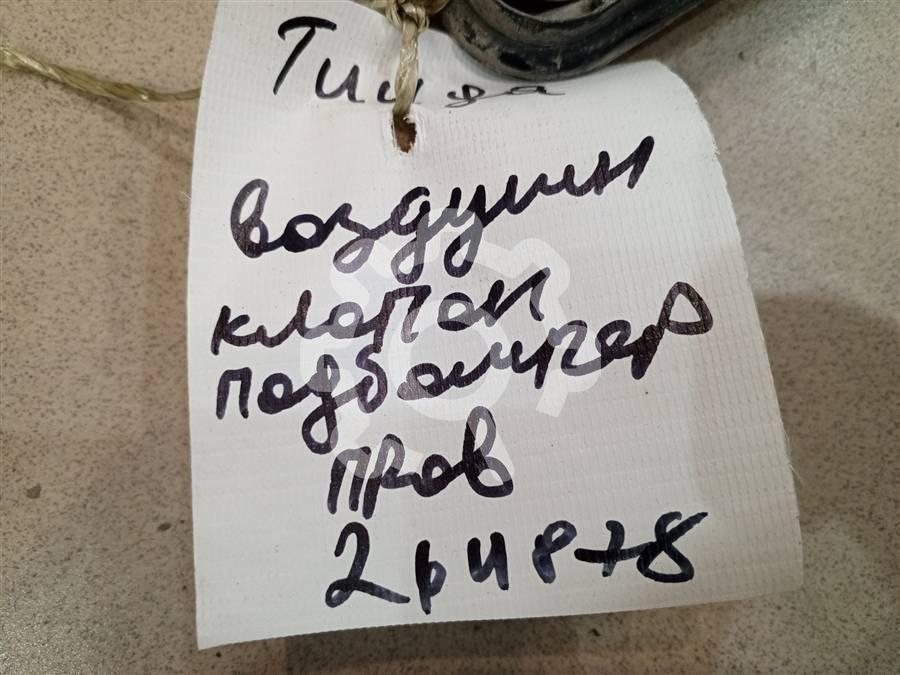 Тиида
воздушн
клапан
подбампер
прав
2рн878